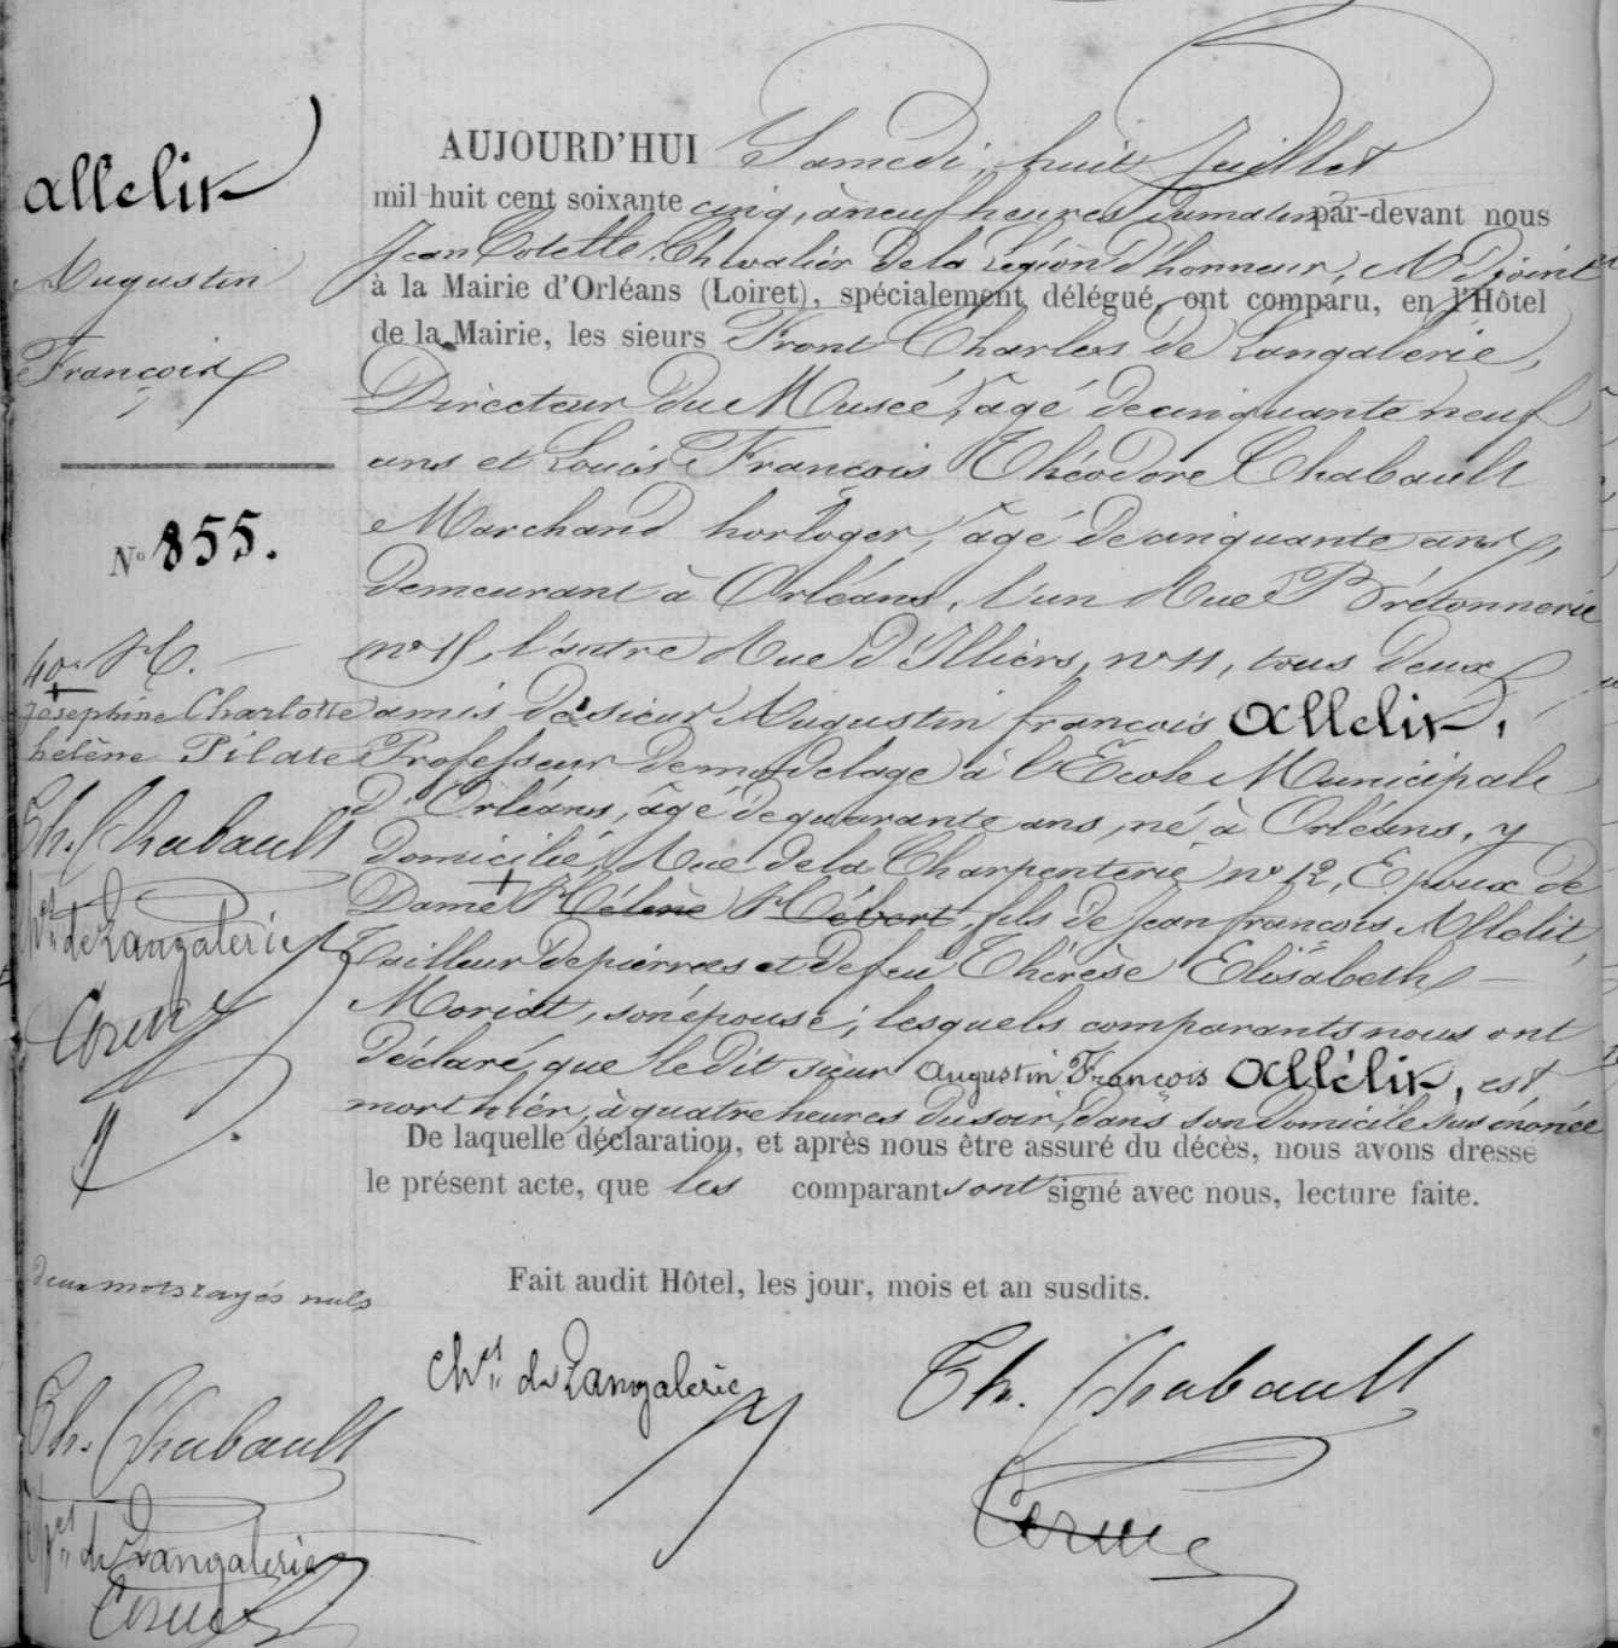 Allelit
Augustin
François
N° 855.
40. H.
+
Joséphine Charlotte
hélène Pilate
Th. Chabault
Ches de Langalerie
deux mots rayés nuls
Th. Chabault
Ches de Langalerie
AUJOURD'HUI Samedi, huit Juillet
mil huit cent soixante cinq, à neuf heures du matin par-devant nous
Jean Colette, Chevalier de la Légion d'honneur, Adjoint
à la Mairie d'Orléans (Loiret), spécialement délégué, ont comparu, en l'Hôtel
de la Mairie, les sieurs Front Charles de Langalerie,
Directeur du Musée, âgé de cinquante neuf
ans et Louis François Théodore Chabault
Marchand horloger, âgé de cinquante ans,
demeurant à Orléans, l'un Rue Brétonnerie
l'autre Rue d'Illiers, n° 11, tous deux
amis de sieur Augustin françois Allelit,
Professeur de modelage à l'Ecole Municipale
d'Orléans, âgé de quarante ans, né à Orléans, y
domicilié, Rue de la Charpenterie n° 12, Epoux de
Dame + Hélène Hébert, fils de Jean françois Allelit,
Tailleur de pierres et de feu Thérèse Elisabeth
Moriat, son épouse; lesquels comparants nous ont
déclaré que ledit sieur Augustin François Allélit, est
mort hier, à quatre heures du soir, dans son domicile sus énoncé
De laquelle déclaration, et après nous être assuré du décès, nous avons dressé
le présent acte, que les comparants ont signé avec nous, lecture faite.
Fait audit Hôtel, les jour, mois et an susdits.
Ches de Langalerie
Th. Chabault